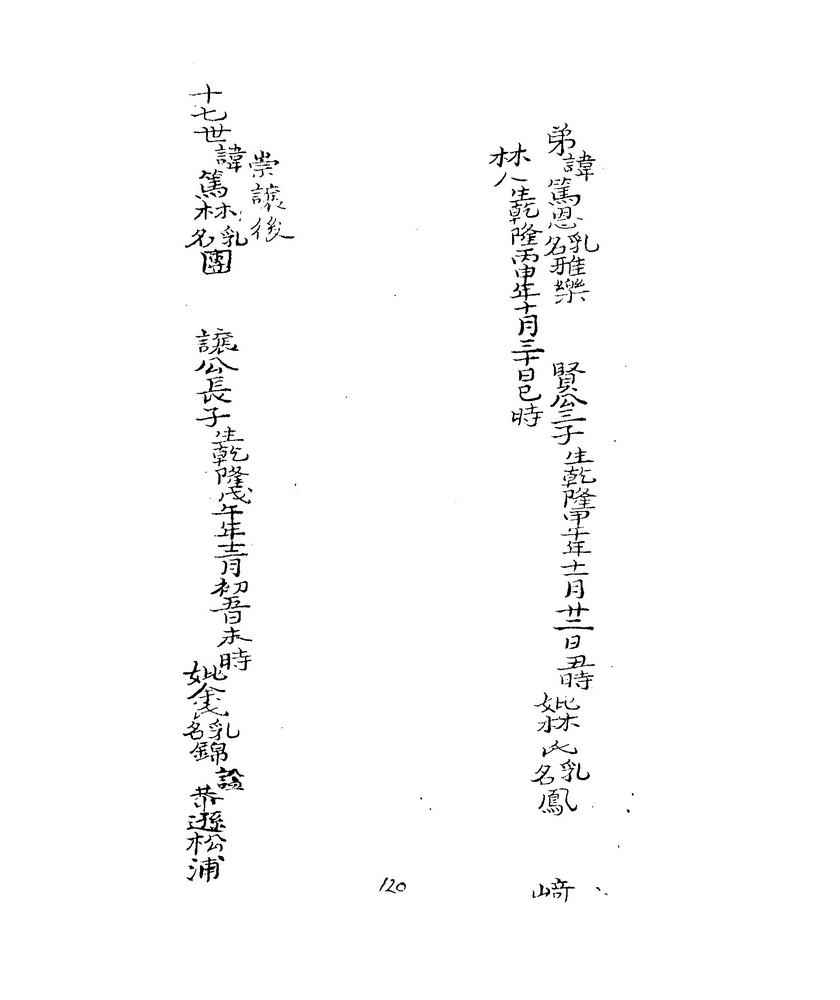 弟諱篤恩乳名雅樂 賢公三子生乾隆甲午年十二月廿二日丑時妣林氏乳名鳳 崎
林八生乾隆丙申年十月三十日巳時
崇讓後
十七世諱篤林乳名團 讓公長子生乾隆戊午年十二月初五日未時妣金氏乳名錦諡恭遜松浦
120